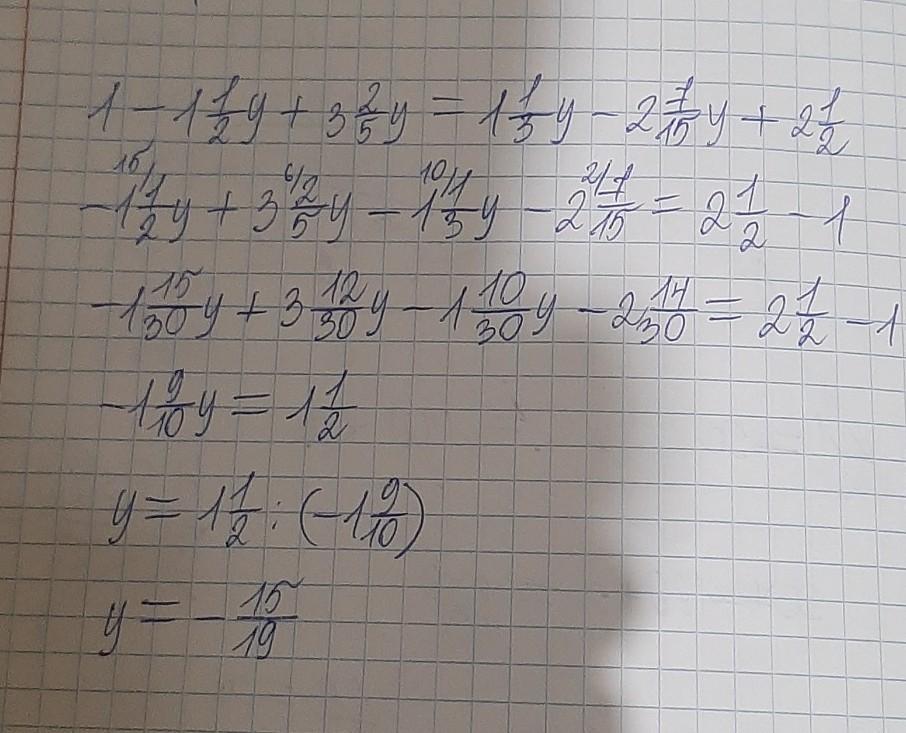 1 - 1 1/2 y + 3 2/5 y = 1 1/3 y - 2 7/15 y + 2 1/2
- 1 15/ 1/2 y + 3 6/ 2/5 y - 1 10/ 1/3 y - 2 2/ 7/15 = 2 1/2 - 1
- 1 15/30 y + 3 12/30 y - 1 10/30 y - 2 14/30 = 2 1/2 - 1
- 1 9/10 y = 1 1/2
y = 1 1/2 : (- 1 9/10)
y = - 15/19